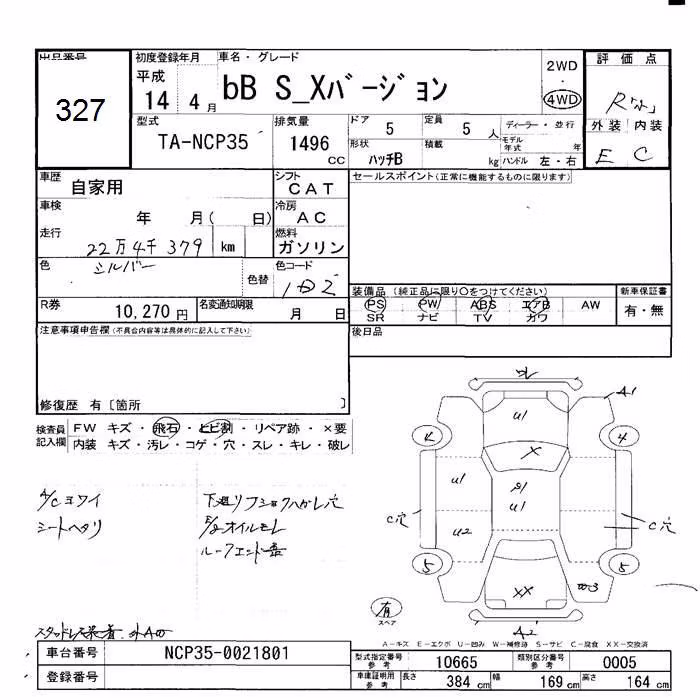 出品番号
327
初度登録年月
平成
14 4月
車名・グレード
bB S_Xバージョン
2WD
・
4WD
評価点
外装 内装
E C
型式
TA-NCP35
排気量
1496
CC
ドア 5
定員 5 人
ディーラー・並行
形状 ハッチB
積載 kg
モデル年式 年
ハンドル 左・右
車歴 自家用
シフト CAT
車検 年 月( 日)
冷房 AC
走行 22万4千379 km
燃料 ガソリン
色 シルバー
色替
色コード
R券 10,270円
名変通知期限 月 日
セールスポイント(正常に機能するものに限ります)
装備品(純正品に限り○をつけてください)
PS PW ABS エアB AW
SR ナビ TV カワ
新車保証書
有・無
後日品
注意事項申告欄(不具合内容等は具体的に記入して下さい)
修復歴 有〔箇所 〕
検査員記入欄
FW キズ・飛石・ヒビ割・リペア跡・×要
内装 キズ・汚レ・コゲ・穴・スレ・キレ・破レ
A/Cヨワイ
シートヘタリ
下廻リフショックハガレ穴
オイルモレ
スタッドレス装着
A1
U1
4
X
U1
U1
U2
C穴
C穴
5
5
XX
A2
有
スペア
A-キズ E-エクボ U-凹み W-補修跡 S-サビ C-腐食 XX-交換済
車台番号 NCP35-0021801
登録番号
型式指定番号 参考 10665
類別区分番号 参考 0005
車庫証明用 参考 長さ 384 cm 幅 169 cm 高さ 164 cm